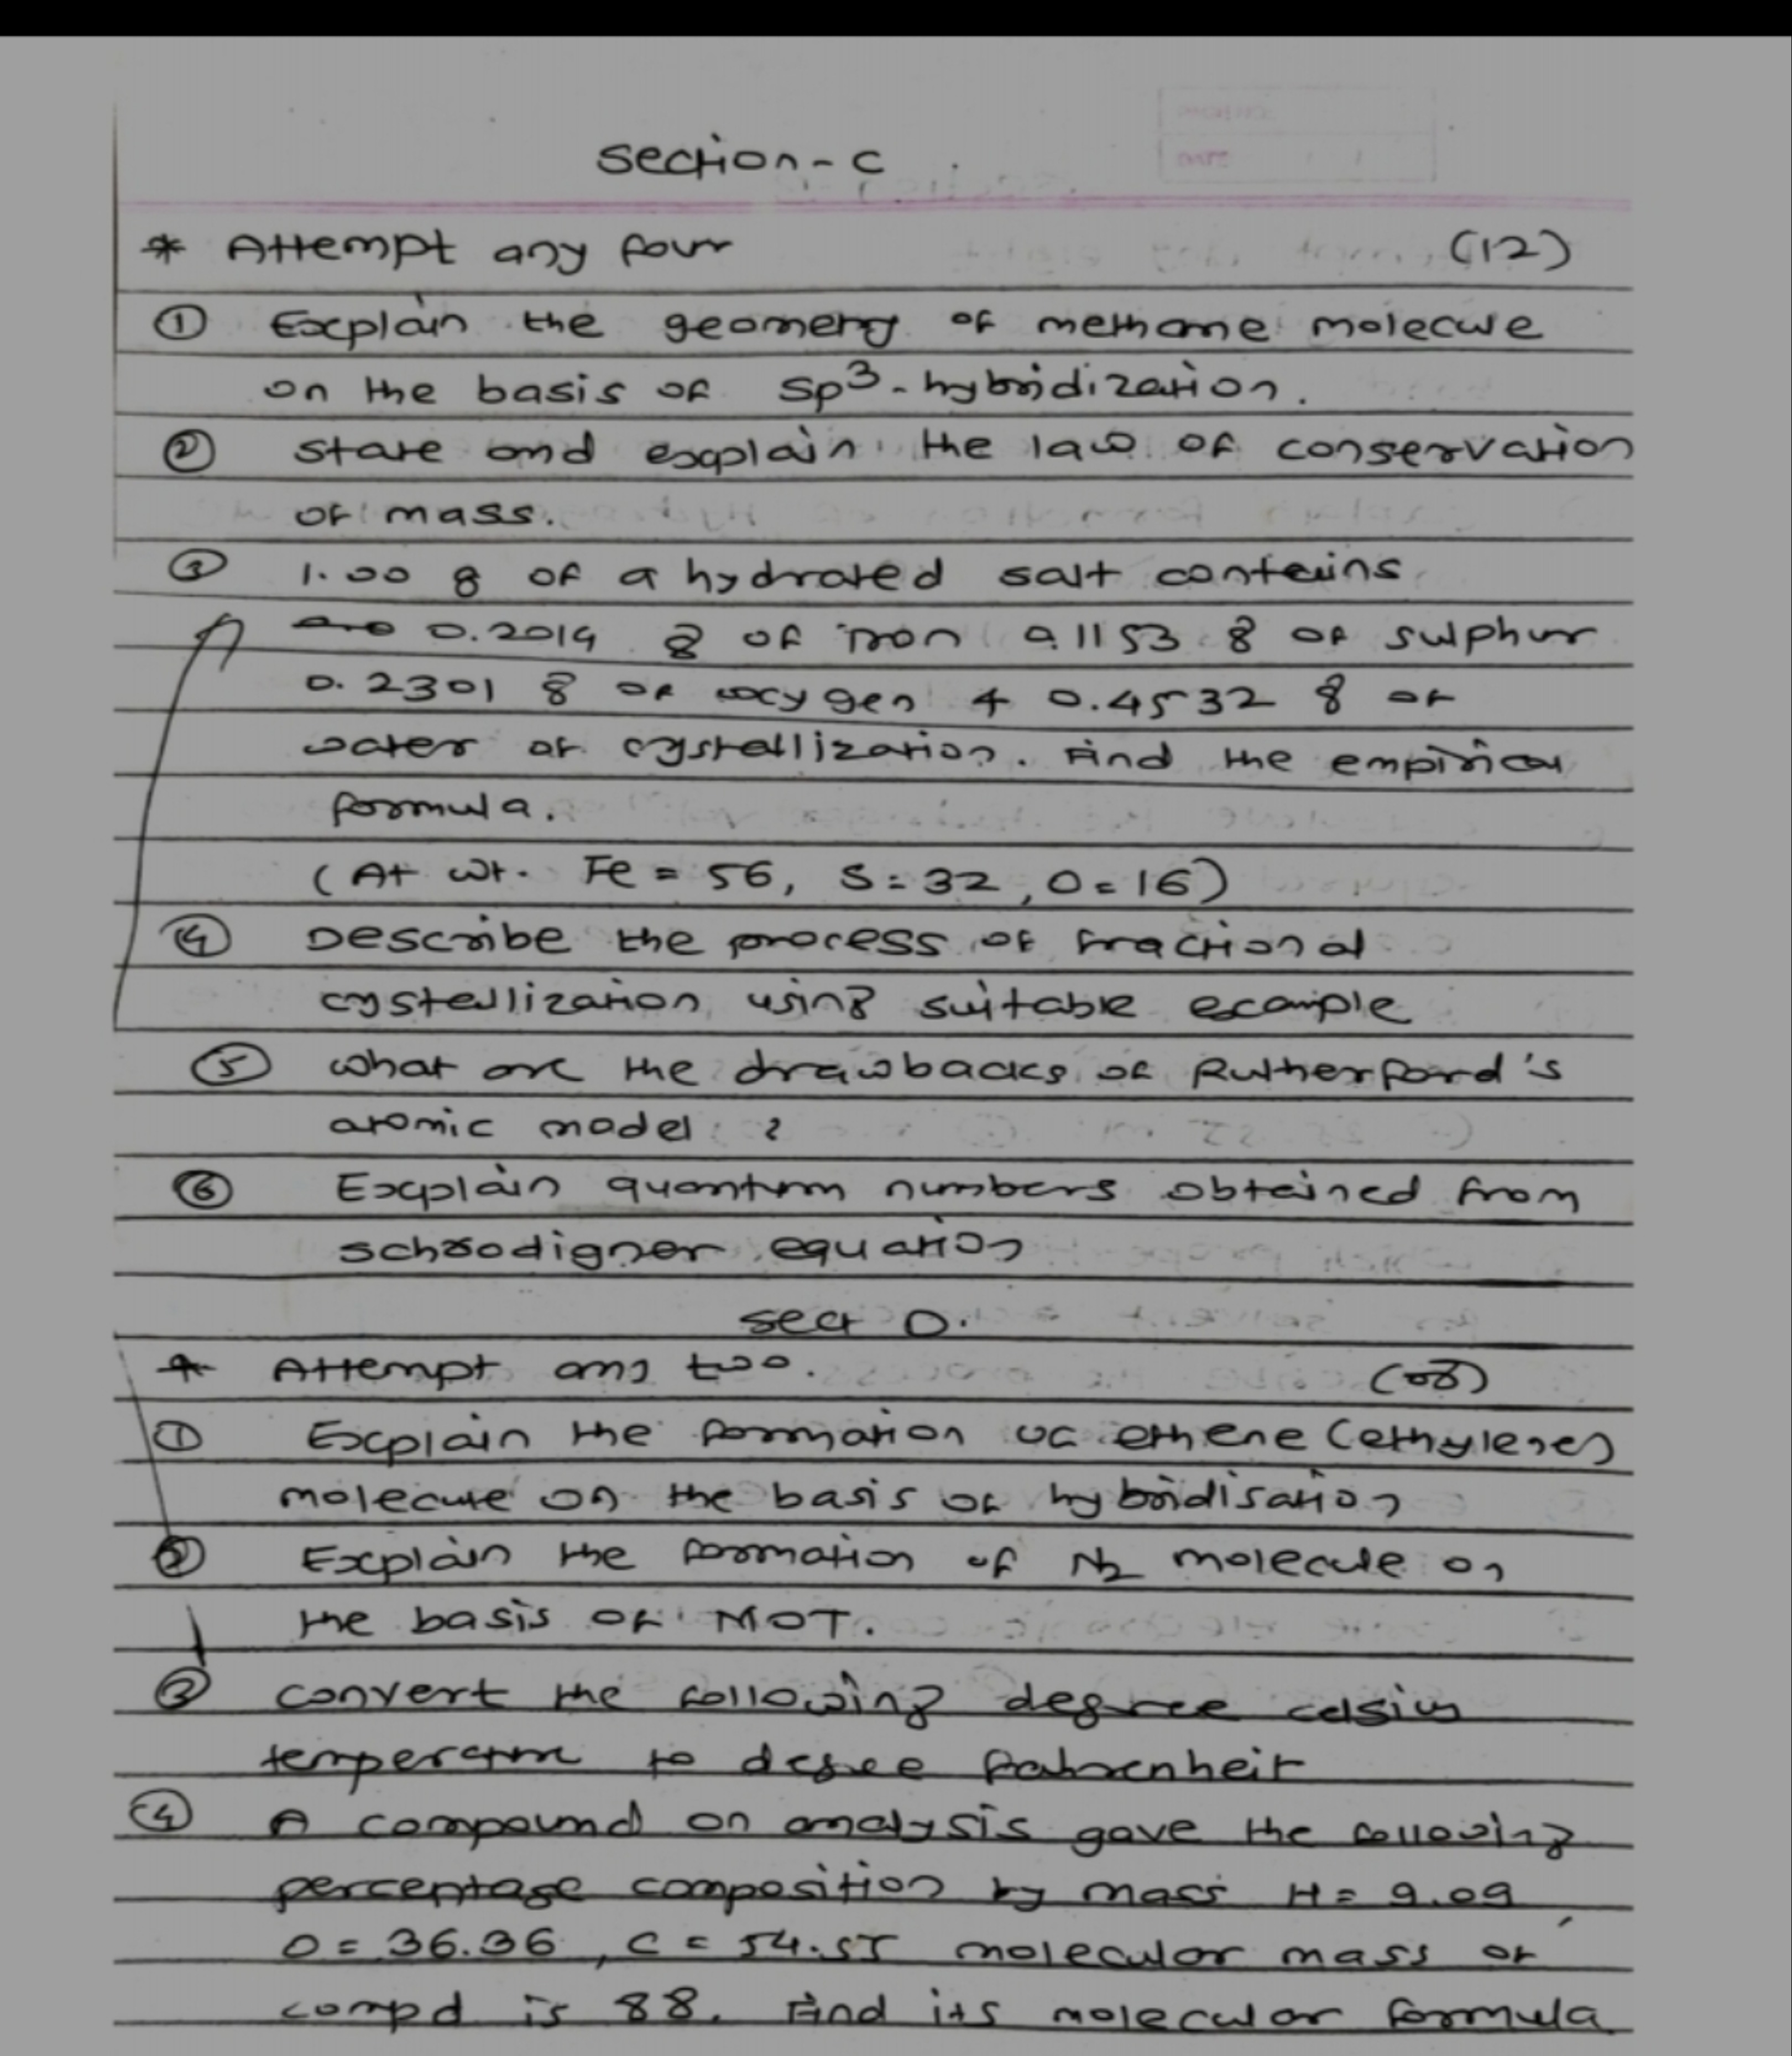 Section-C
* Attempt any four (12)
① Explain the geometry of methane molecule
on the basis of sp3-hybridization.
② state and explain the law of conservation
of mass.
③ 1.00 g of a hydrated salt contains
0.2014 g of iron 0.1153 g of sulphur
0.2301 g of oxygen & 0.4532 g of
water of crystallization. Find the empirical
formula.
(At wt. Fe = 56, S = 32, O = 16)
④ Describe the process of fractional
crystallization using suitable example
⑤ What are the drawbacks of Rutherford's
atomic model ?
⑥ Explain quantum numbers obtained from
schrodigner equation
sect D.
* Attempt any two. (08)
① Explain the formation of ethene (ethylene)
molecule on the basis of hybridisation
② Explain the formation of N2 molecule on
the basis of MOT.
③ convert the following degree celsius
temperature to degree fahrenheit
④ A compound on analysis gave the following
percentage composition by mass H = 9.09
O = 36.36, C = 54.55 molecular mass of
compd is 88. Find its molecular formula